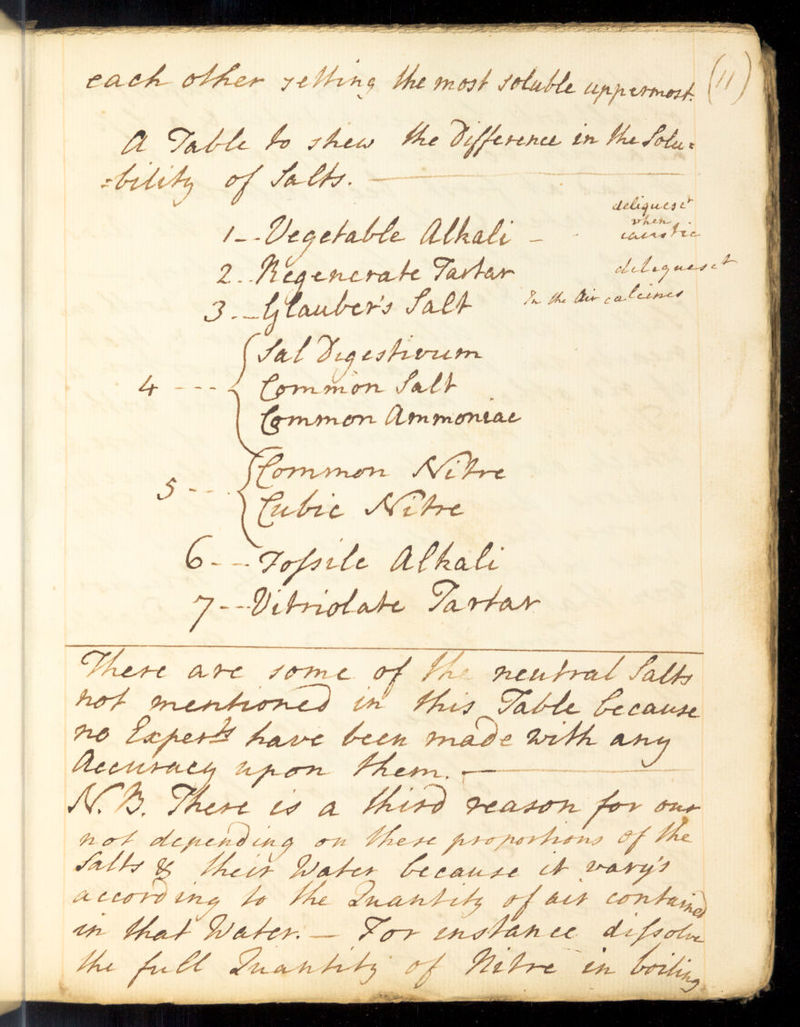 (11)
each other setting the most soluble uppermost.
A Table to shew the Difference in the Solu=
=bility of Salts.
1--Vegetable Alkali - - deliquesct
when
caustic
2--Regenerate Tartar deliquesct
3--Glauber's Salt In the Air calcines
Sal Digestivum
4 --- Common Salt
Common Ammoniac
Common Nitre
5 ---
Cubic Nitre
6---Fossile Alkali
7--Vitriolate Tartar
There are some of the neutral Salts
not mentioned in this Table because
no Experts have been made with any
Accuracy upon them. —
N.B. There is a third reason for our
not depending on these proportions of the
Salts & their Water because it vary's
according to the Quantity of air contained
in that Water. — For instance dissolve
the full Quantity of Nitre in boiling